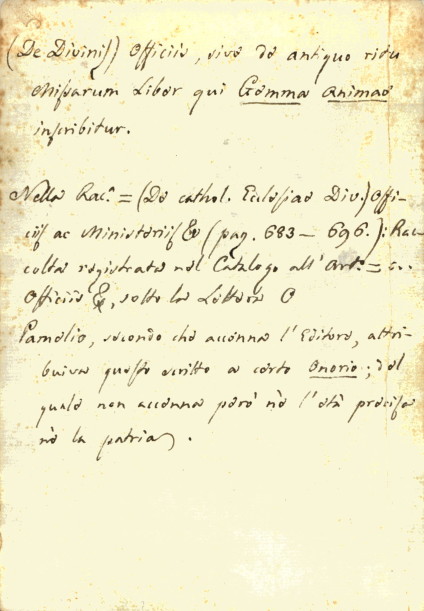 (De Divinis) Officiis, sive de antiquo ritu
Missarum Liber qui Gemma Animae
inscribitur.
Nella Rac.ª = (De cathol. Ecclesiae Div.) Offi-
ciis ac Ministeriis &c (pag. 683 — 696.): Rac-
colta registrata nel Catalogo all' Art.º =
Officiis &c, sotto la Lettera O
Pamelio, secondo che accenna l'Editore, attri-
buiva questo scritto a certo Onorio; del
quale non accenna però nè l'età precisa
nè la patria.